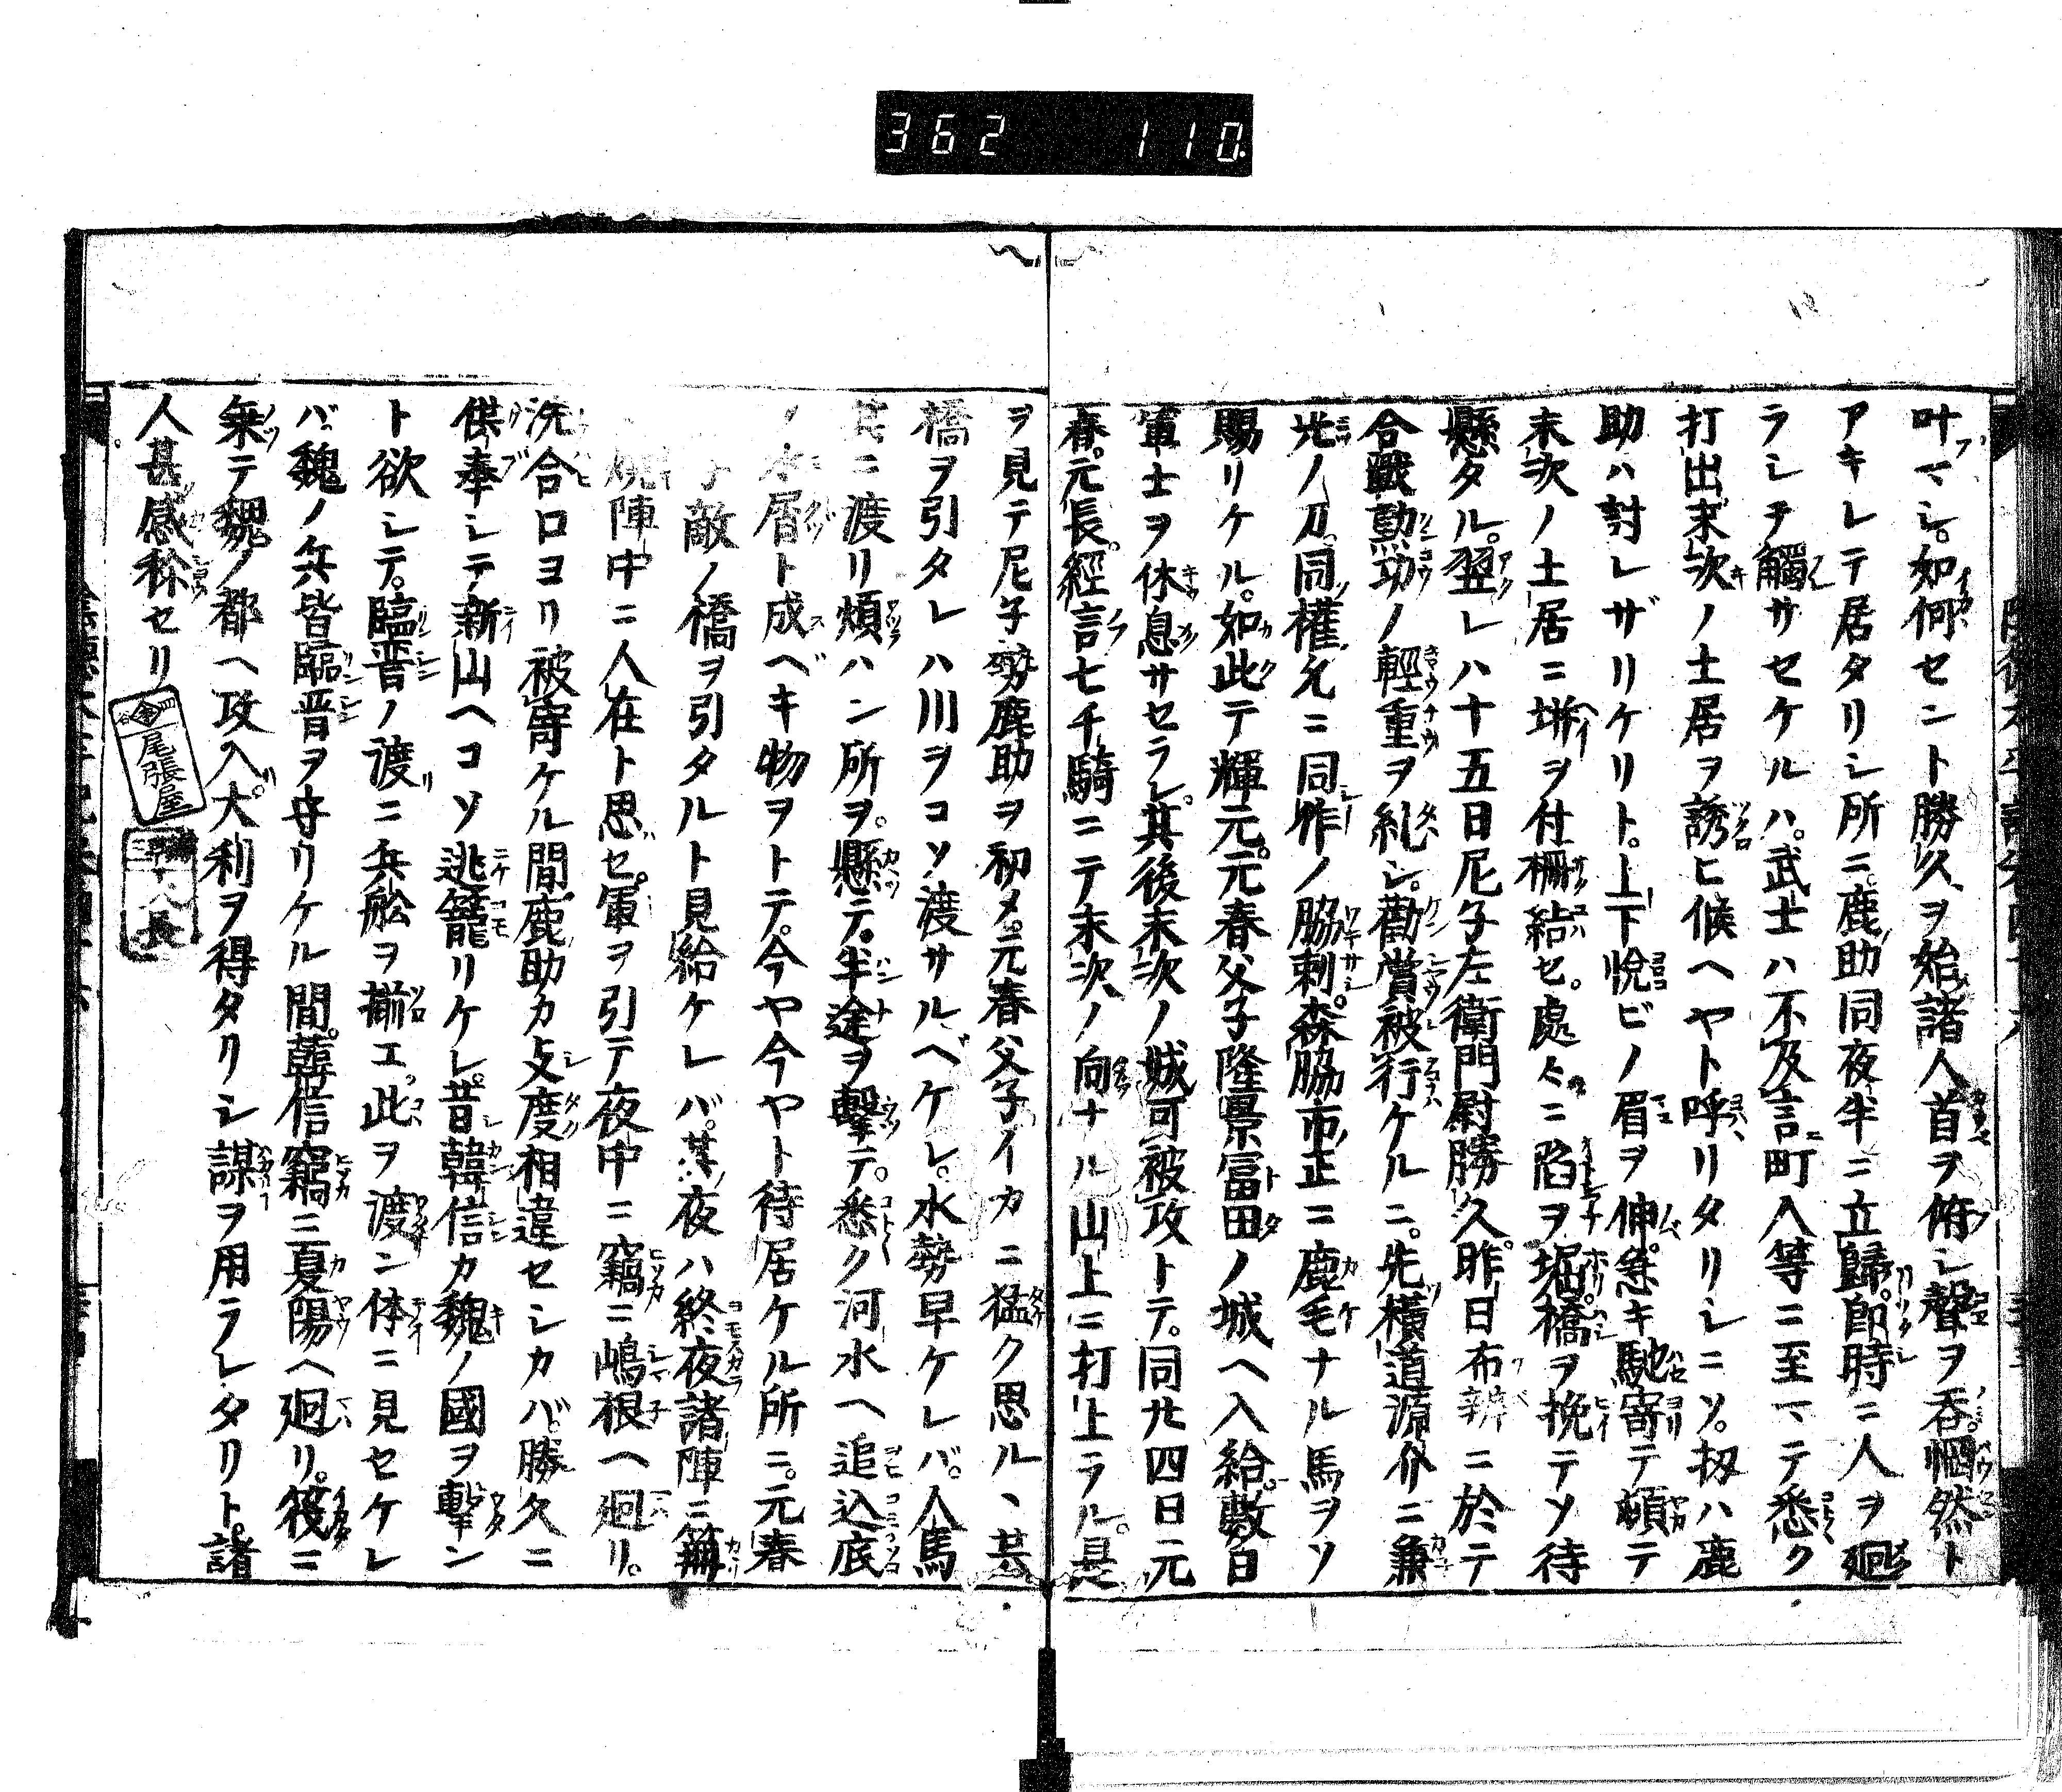 362 110
叶マシ。如何セント勝久ヲ始諸人首ヲ俯シ聲ヲ吞。惘然ト
アキレテ居タリシ所ニ。鹿助同夜半ニ立歸。即時ニ人ヲ廻
ラシテ觸サセケルハ。武士ハ不及言町人等ニ至マテ悉ク
打出末次ノ土居ヲ誘ヒ候ヘヤト呼リタリシニソ。扨ハ鹿
助ハ討レザリケリト。上下悅ビノ眉ヲ伸。急キ馳寄テ頓テ
末次ノ土居ニ塀ヲ付柵結セ。處々ニ陷ヲ堀。橋ヲ挽テソ待
懸タル。翌レハ十五日尼子左衛門尉勝久。昨日布辨ニ於テ
合戰勳功ノ輕重ヲ糺シ。勸賞被行ケルニ。先橫道源介ニ兼
光ノ刀。同權允ニ同昨ノ脇刺。森脇市正ニ鹿毛ナル馬ヲソ
賜リケル。如此テ輝元。元春父子隆景冨田ノ城ヘ入給。數日
軍士ヲ休息サセラレ。其後末次ノ城可被攻トテ。同廿四日元
春。元長。經言七千騎ニテ末次ノ向ナル山上ニ打上ラル。是
ヲ見テ尼子勢鹿助ヲ初メ。元春父子イカニ猛ク思ル、共
橋ヲ引タレハ川ヲコソ渡サルベケレ。水勢早ケレバ。人馬
共ニ渡リ煩ハン所ヲ。懸テ。半途ヲ擊テ。悉ク河水ヘ追込底
ノ水屑ト成ベキ物ヲトテ。今ヤ今ヤト待居ケル所ニ。元春
敵ノ橋ヲ引タルト見給ケレバ。其夜ハ終夜諸陣ニ篝
燒陣中ニ人在ト思セ。軍ヲ引テ夜中ニ竊ニ嶋根ヘ廻リ。
洗合口ヨリ被寄ケル間。鹿助カ支度相違セシカバ。勝久ニ
供奉シテ新山ヘコソ逃籠リケレ。昔韓信カ魏ノ國ヲ擊ン
ト欲シテ。臨晋ノ渡ニ兵舩ヲ揃エ。此ヲ渡ン体ニ見セケレ
バ魏ノ兵皆臨晋ヲ守リケル間。韓信竊ニ夏陽ヘ廻リ。筏ニ
乗テ魏ノ都ヘ攻入。大利ヲ得タリシ謀ヲ用ラレタリト。諸
人甚感称セリ
尾張屋
長